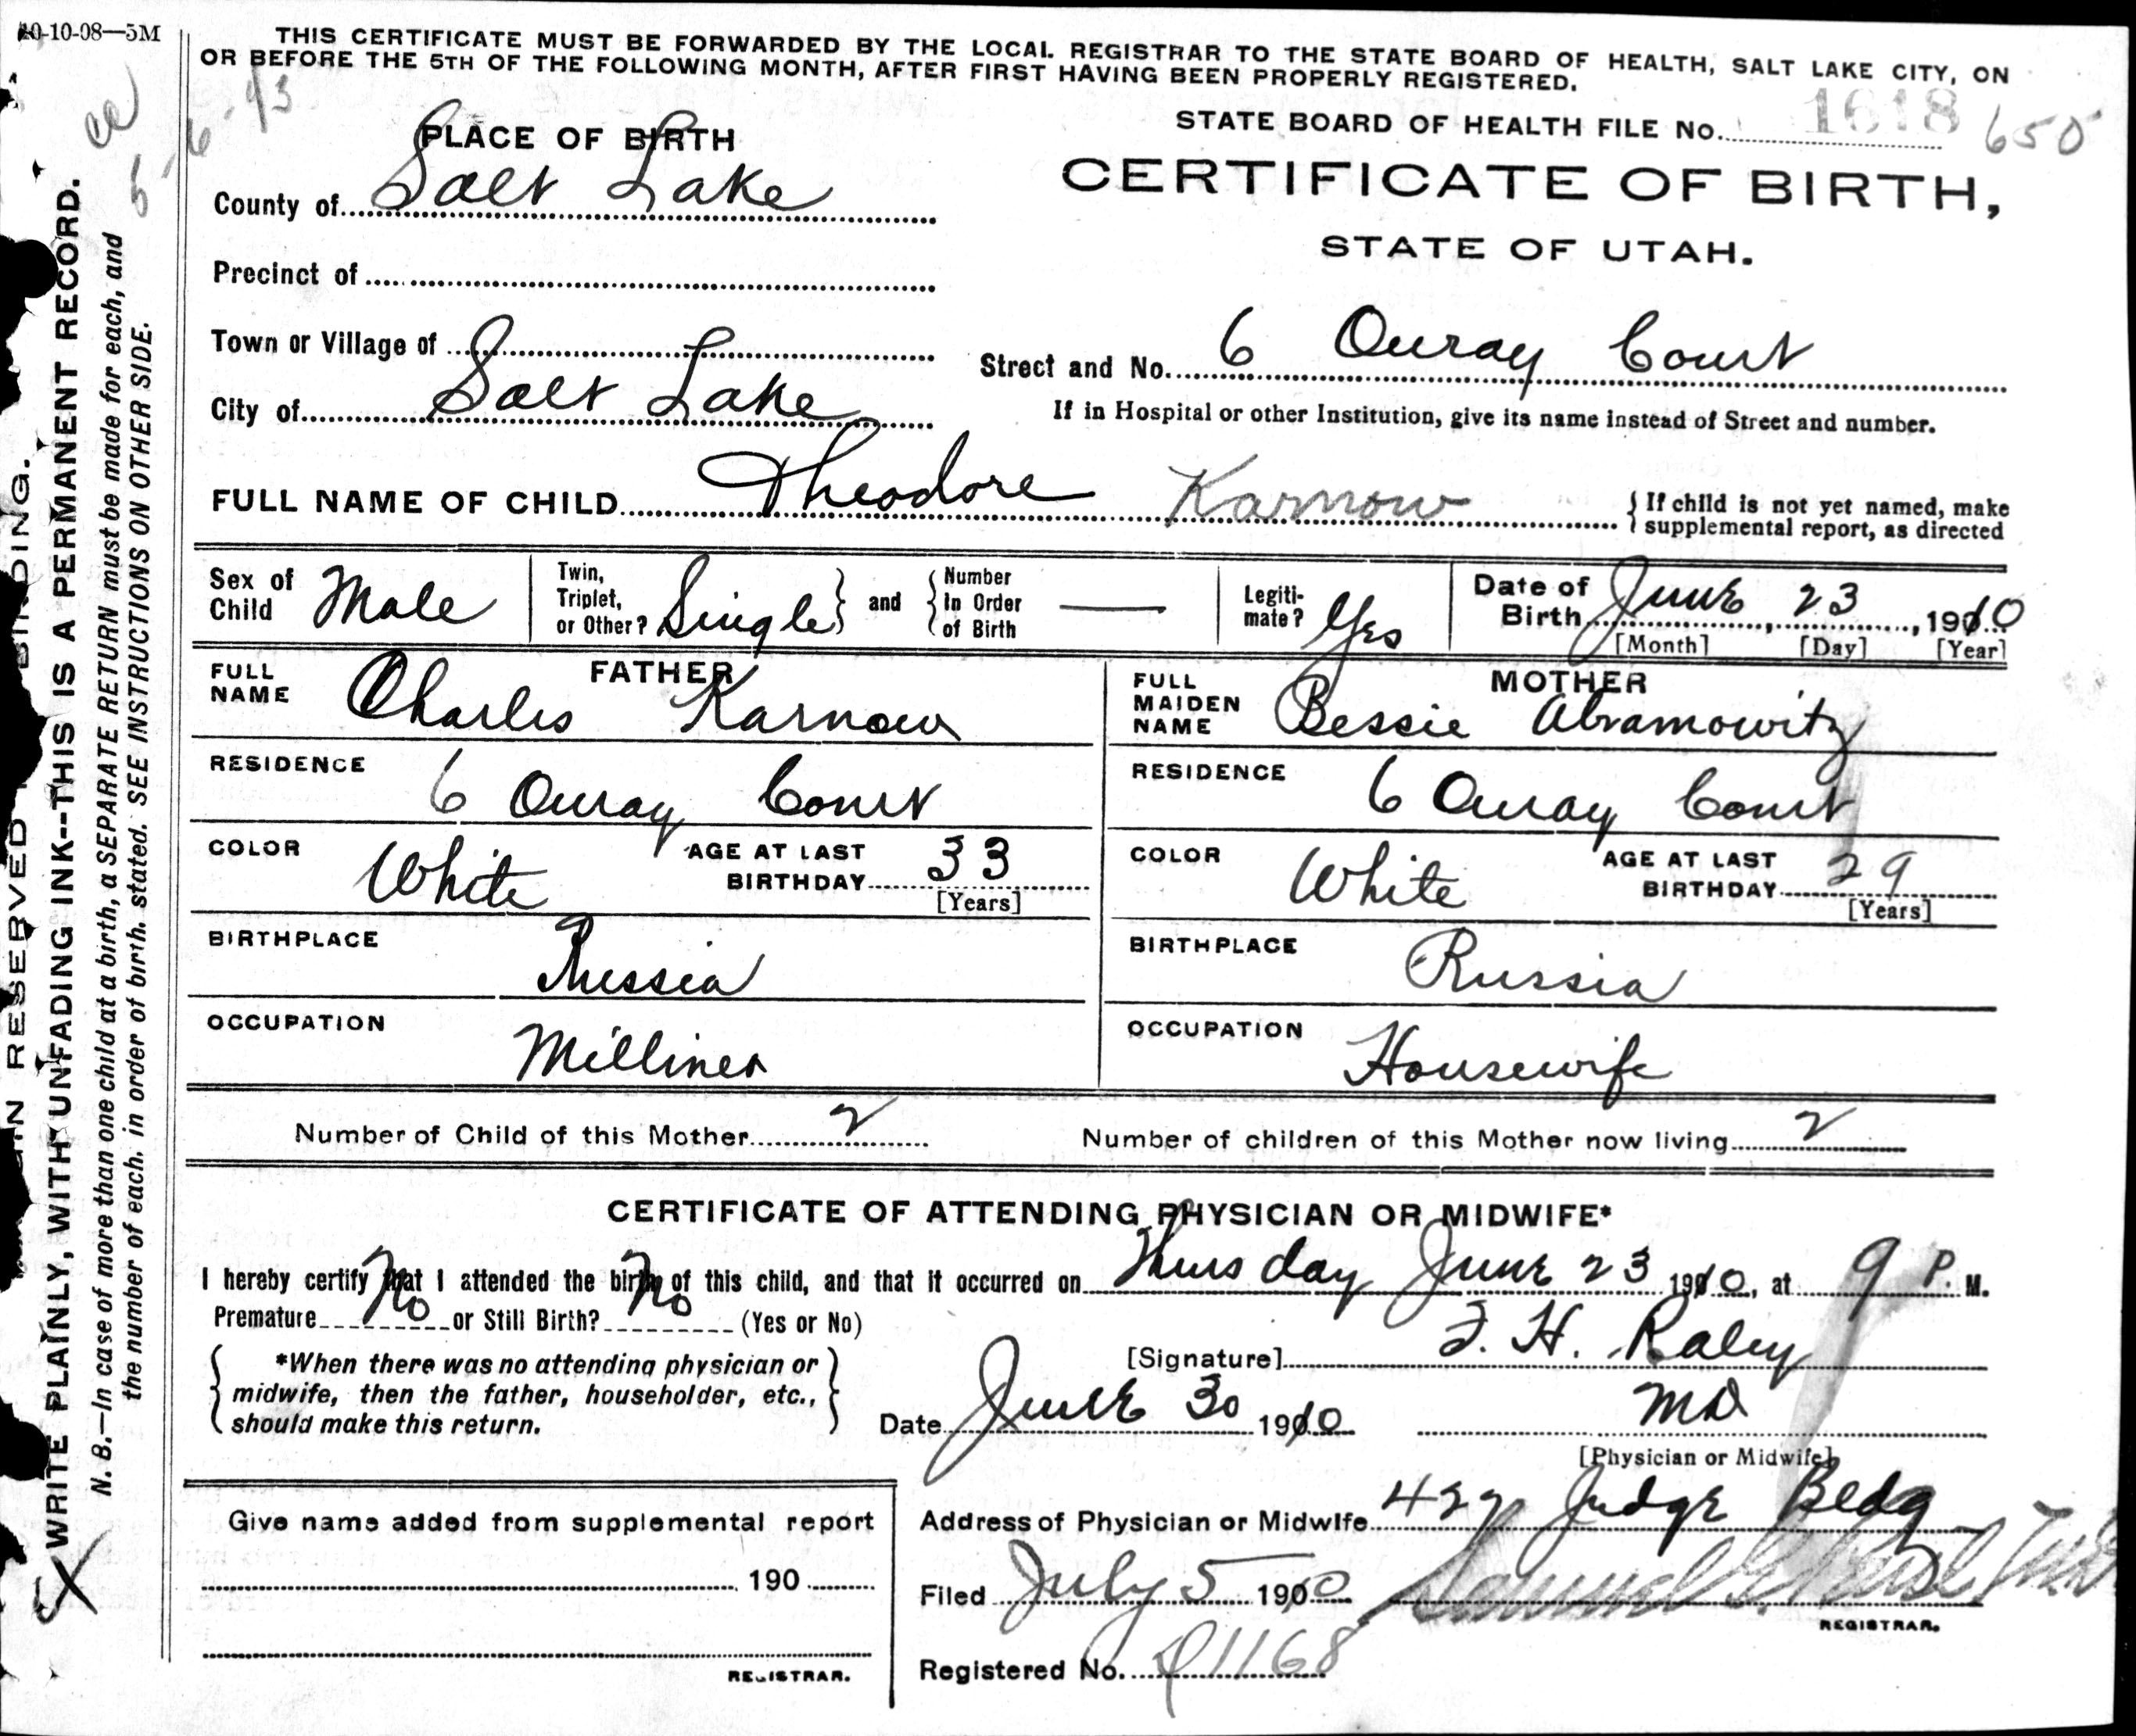 10-10-08—5M
THIS CERTIFICATE MUST BE FORWARDED BY THE LOCAL REGISTRAR TO THE STATE BOARD OF HEALTH, SALT LAKE CITY, ON
OR BEFORE THE 5TH OF THE FOLLOWING MONTH, AFTER FIRST HAVING BEEN PROPERLY REGISTERED.
STATE BOARD OF HEALTH FILE No. 1618 650
PLACE OF BIRTH
CERTIFICATE OF BIRTH,
STATE OF UTAH.
County of Salt Lake
Precinct of
Town or Village of
Street and No. 6 Ouray Court
City of Salt Lake
If in Hospital or other Institution, give its name instead of Street and number.
FULL NAME OF CHILD Theodore Karnow { If child is not yet named, make
supplemental report, as directed
Sex of Child Male
Twin, Triplet, or Other? Single } and { Number In Order of Birth —
Legiti-mate? Yes
Date of Birth June 23, 1910
[Month] [Day] [Year]
FATHER
FULL NAME Charles Karnow
RESIDENCE 6 Ouray Court
COLOR White AGE AT LAST BIRTHDAY 33
[Years]
BIRTHPLACE Russia
OCCUPATION Milliner
MOTHER
FULL MAIDEN NAME Bessie Abramowitz
RESIDENCE 6 Ouray Court
COLOR White AGE AT LAST BIRTHDAY 29
[Years]
BIRTHPLACE Russia
OCCUPATION Housewife
Number of Child of this Mother 2 Number of children of this Mother now living 2
CERTIFICATE OF ATTENDING PHYSICIAN OR MIDWIFE*
I hereby certify that I attended the birth of this child, and that it occurred on Thursday June 23 1910, at 9 P. M.
Premature No or Still Birth? No (Yes or No)
[Signature] F. H. Raley
{ *When there was no attending physician or
midwife, then the father, householder, etc.,
should make this return. }
Date June 30 1910 MD
[Physician or Midwife]
Address of Physician or Midwife 422 Judge Bldg
Give name added from supplemental report
190
REGISTRAR.
Filed July 5 1910
REGISTRAR.
Registered No. 1168
RESERVED BINDING.
WRITE PLAINLY, WITH UNFADING INK--THIS IS A PERMANENT RECORD.
N. B.—In case of more than one child at a birth, a SEPARATE RETURN must be made for each, and
the number of each, in order of birth, stated. SEE INSTRUCTIONS ON OTHER SIDE.